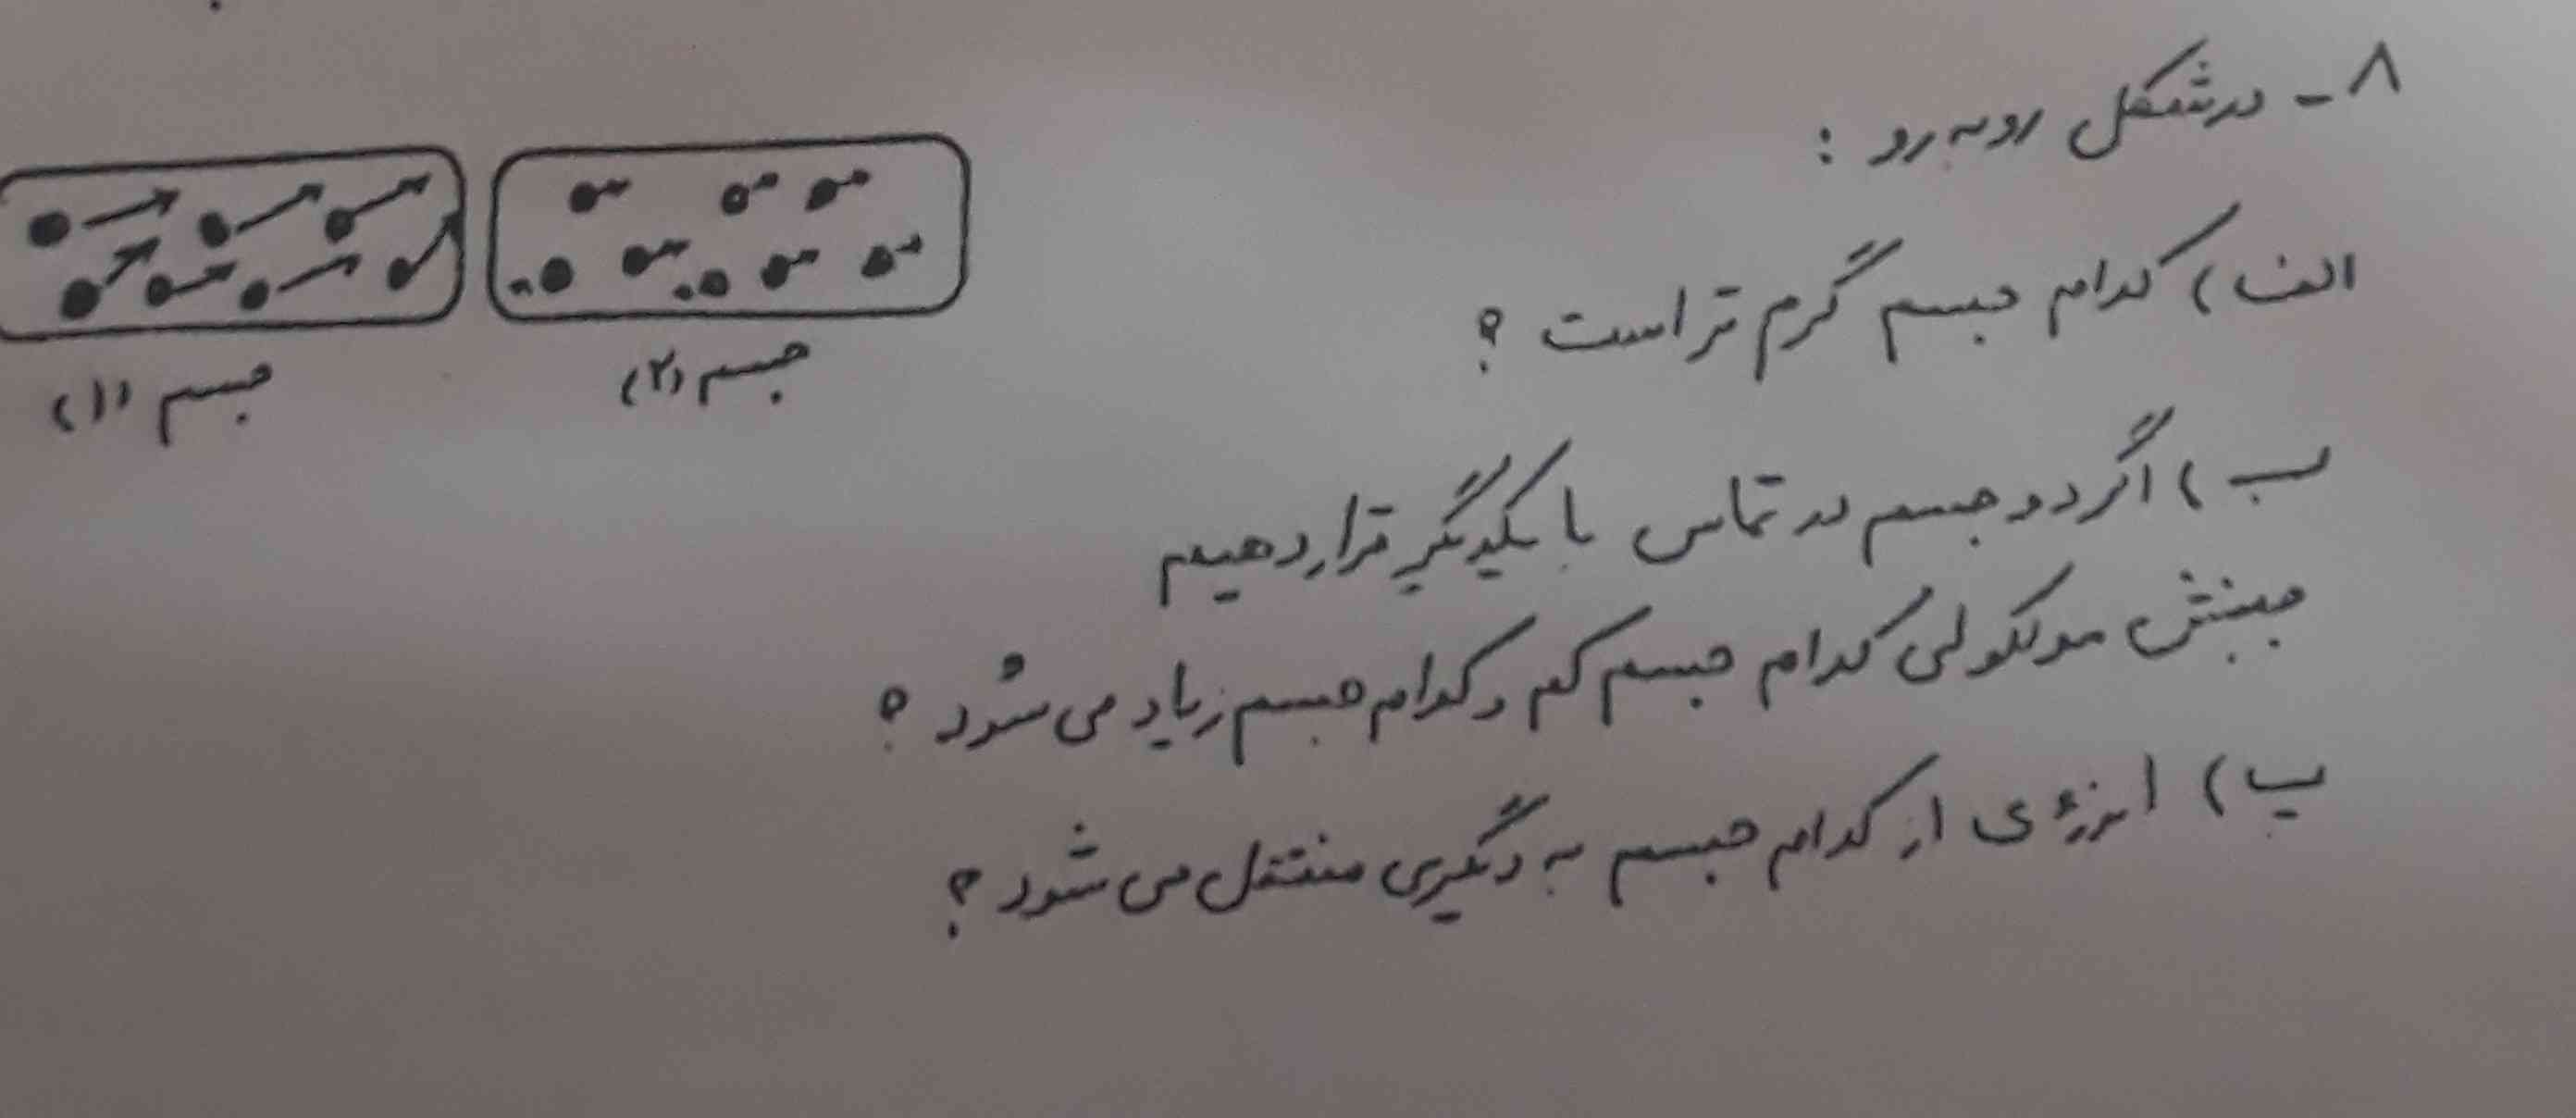 ۸ - در شکل روبه رو :
الف) کدام جسم گرم تر است ؟
ب) اگر دو جسم در تماس با یکدیگر قرار دهیم
جنبش مولکولی کدام جسم کم و کدام جسم زیاد می شود ؟
پ) انرژی از کدام جسم به دیگری منتقل می شود ؟
جسم (۲)
جسم (۱)